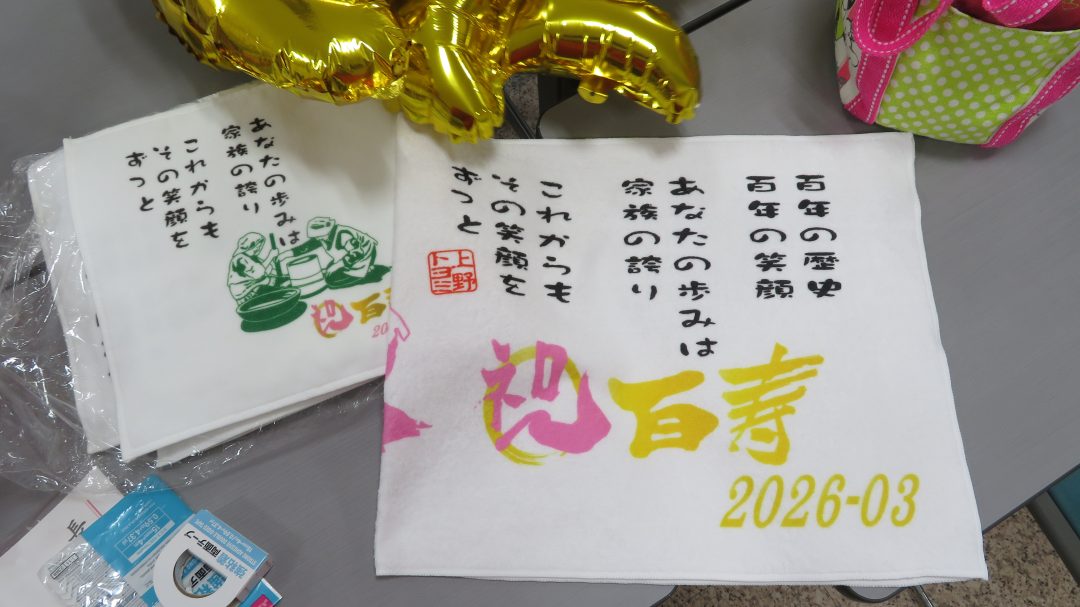 百年の歴史
百年の笑顔
あなたの歩みは
家族の誇り
これからも
その笑顔を
ずっと
上野
トヨミ
祝百寿
2026-03
あなたの歩みは
家族の誇り
これからも
その笑顔を
ずっと
祝百
202
強粘着両面テープ
長